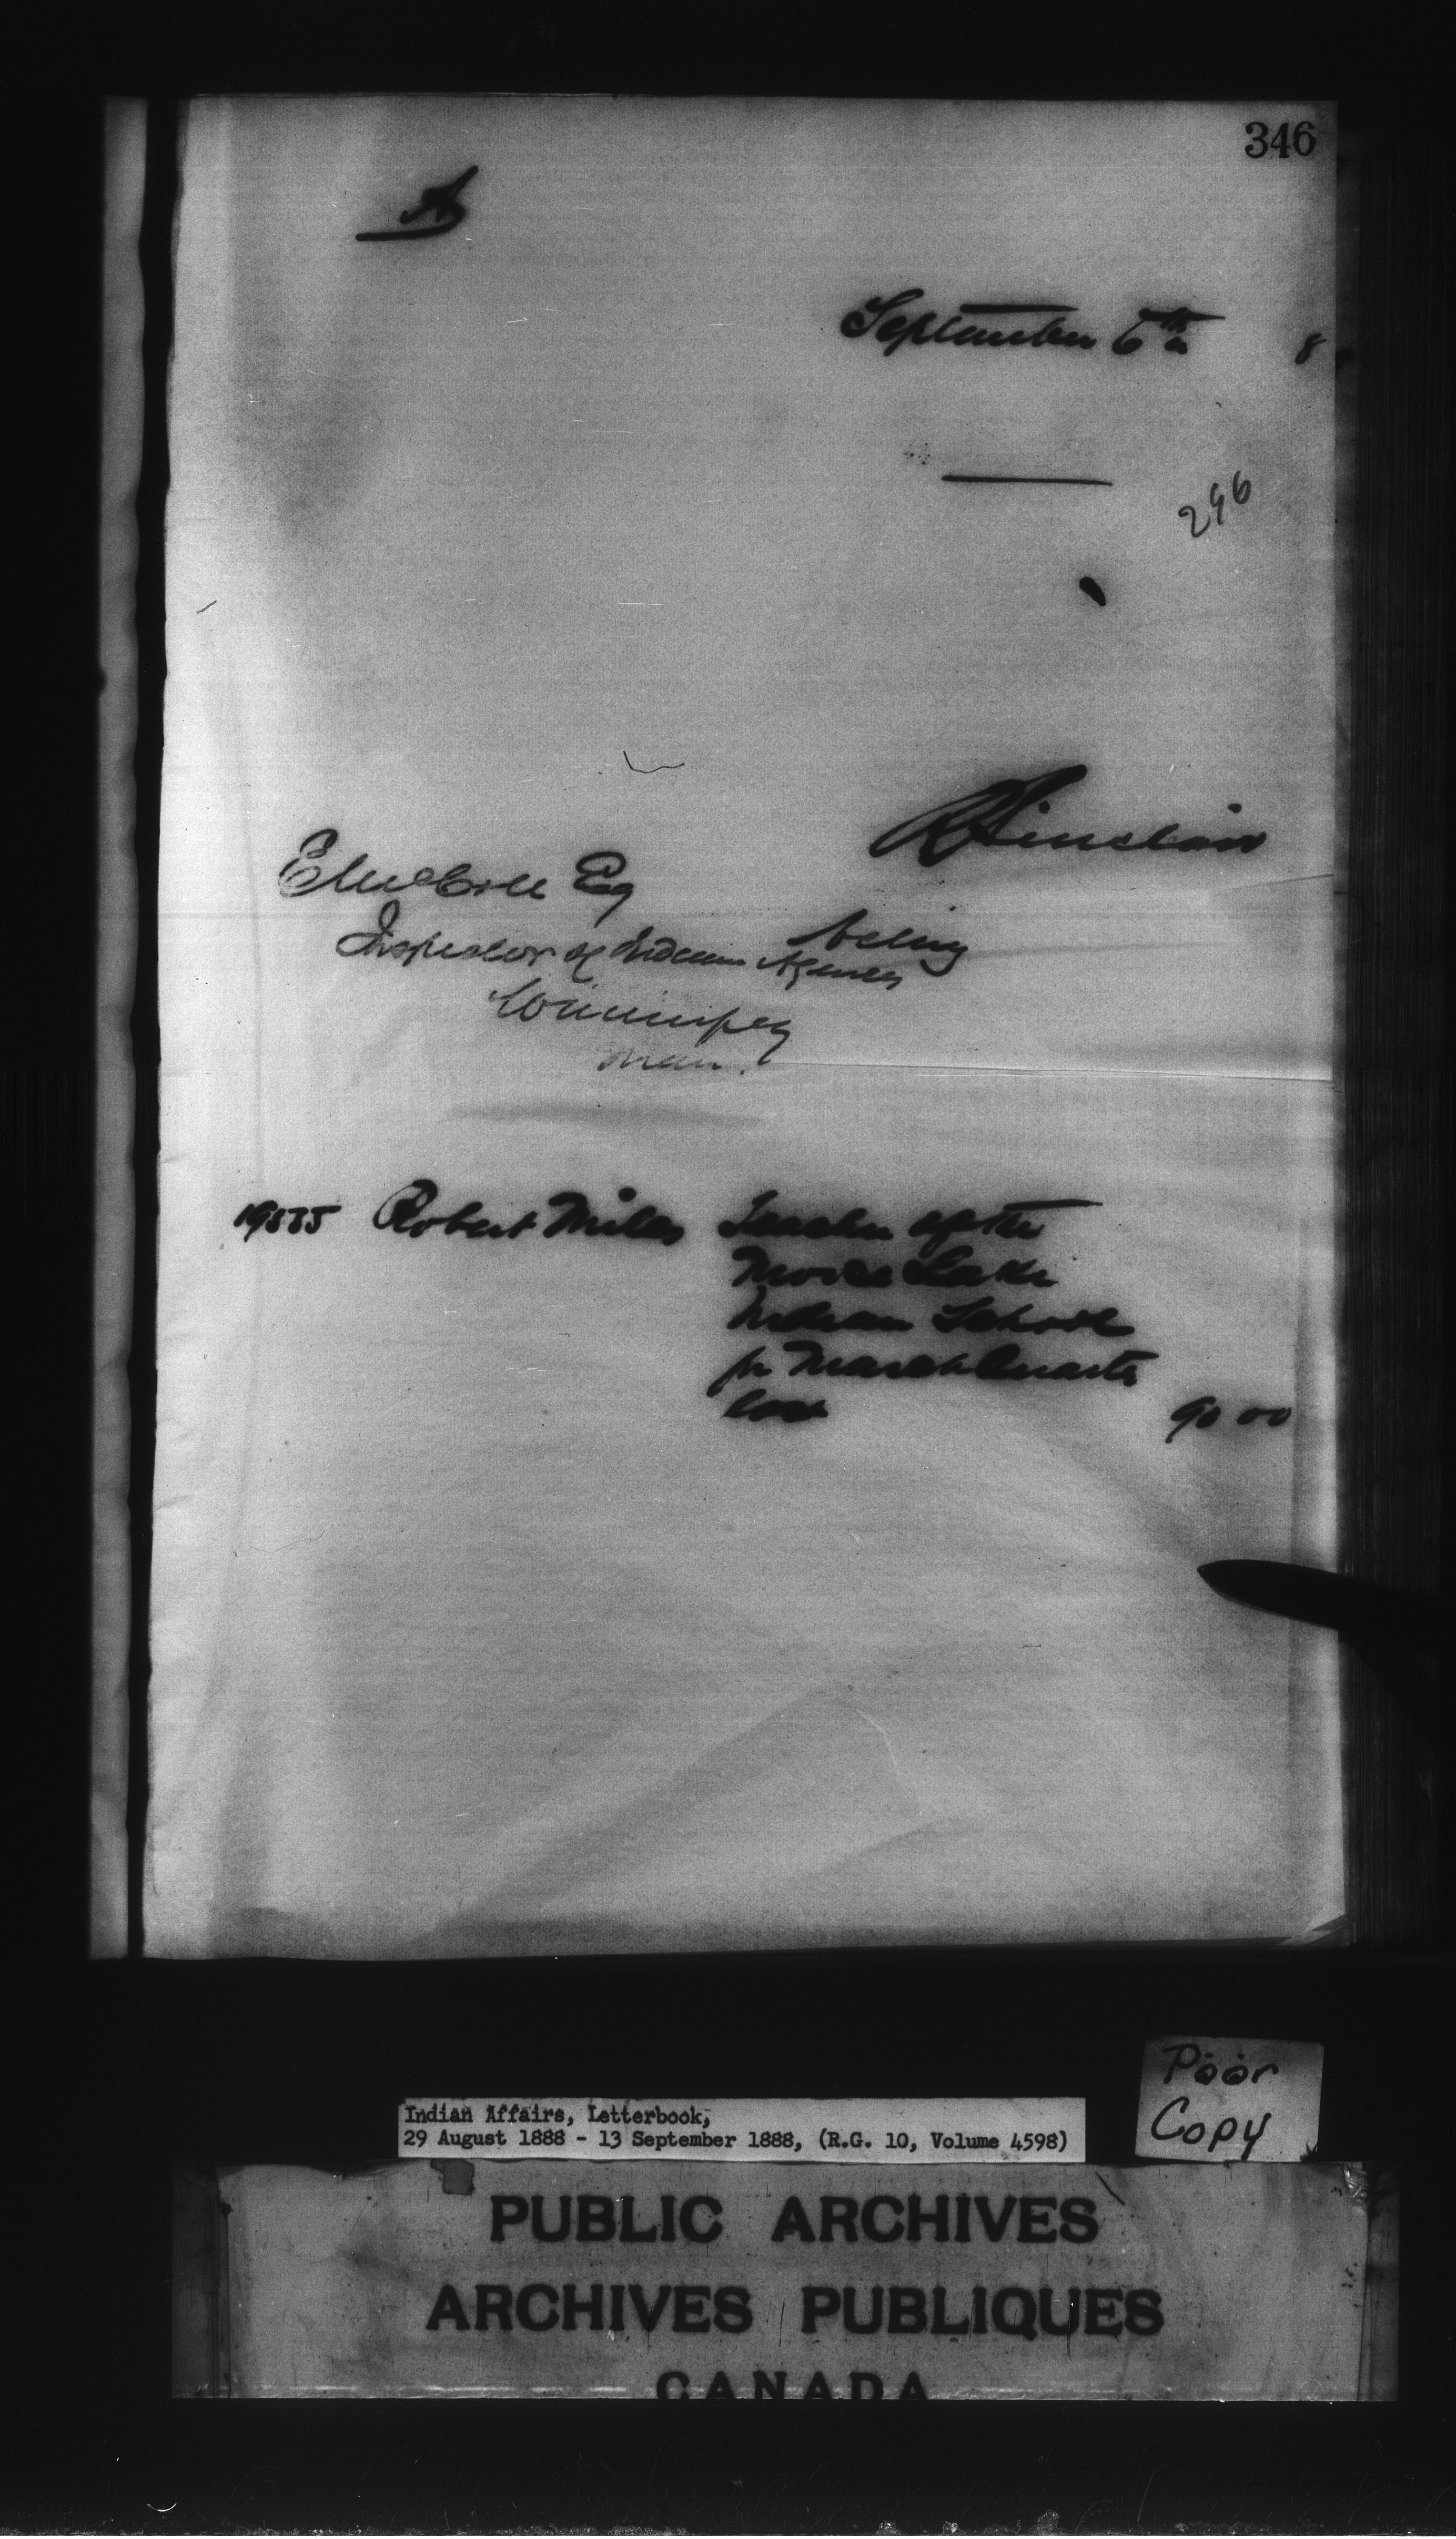 346
A
September 6th 8
296
R Sinclair
E McColl Esq
Acting
Inspector of Indian Agencies
Winnipeg
Man.
Robert Miles Teacher of the
Moose Lake
Indian School
for March Quarter
last 90 00
Poor
Copy
Indian Affairs, Letterbook,
29 August 1888 - 13 September 1888, (R.G. 10, Volume 4598)
PUBLIC ARCHIVES
ARCHIVES PUBLIQUES
CANADA